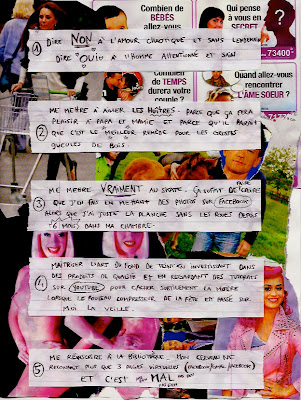 Combien de
BÉBÉS
allez-vous
Qui pense
à vous en
SECRET
73400
① DIRE NON À L'AMOUR CHAOTIQUE ET SANS LENDEMAIN
DIRE "OUI" À L'HOMME ATTENTIONNÉ ET BON
Combien
de TEMPS
durera votre
couple ?
Quand allez-vous
rencontrer
L'ÂME SOEUR
② ME METTRE À AIMER LES HUÎTRES. PARCE QUE ÇA FERA
PLAISIR À PAPA ET MAMIE ET PARCE QU'IL PARAÎT
QUE C'EST LE MEILLEUR REMÈDE POUR LES GROSSES
GUEULES DE BOIS
③ ME METTRE VRAIMENT AU SPORT. ÇA SUFFIT DE FAIRE CROIRE
QUE J'EN FAIS EN METTANT DES PHOTOS SUR FACEBOOK
ALORS QUE J'AI JUSTE LA PLANCHE SANS LES ROUES DEPUIS
6 MOIS DANS MA CHAMBRE.
④ MAÎTRISER L'ART DU FOND DE TEINT EN INVESTISSANT DANS
DES PRODUITS DE QUALITÉ ET EN REGARDANT DES TUTORIALS
SUR YOUTUBE POUR CACHER SUBTILEMENT LA MISÈRE
LORSQUE LE ROULEAU COMPRESSEUR DE LA FÊTE EST PASSÉ SUR
MOI LA VEILLE.
⑤ ME RÉINSCRIRE À LA BIBLIOTHÈQUE. MON CERVEAU NE
RECONNAIT PLUS QUE 3 PAGES VIRTUELLES (FACEBOOK/GMAIL/FACEBOOK)
ET C'EST MAL